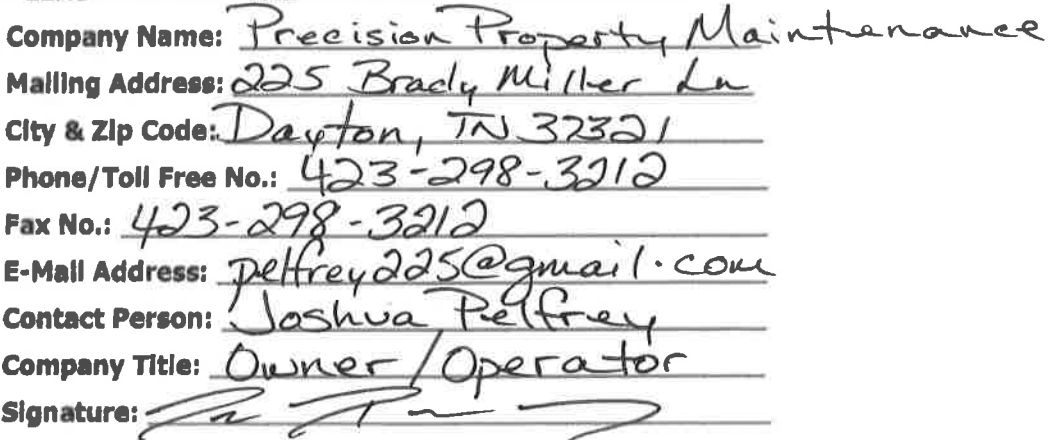 Company Name: Precision Property Maintenance
Mailing Address: 225 Brady Miller Ln
City & Zip Code: Dayton, TN 37321
Phone/Toll Free No.: 423-298-3212
Fax No.: 423-298-3212
E-Mail Address: pelfrey225@gmail.com
Contact Person: Joshua Pelfrey
Company Title: Owner/Operator
Signature: